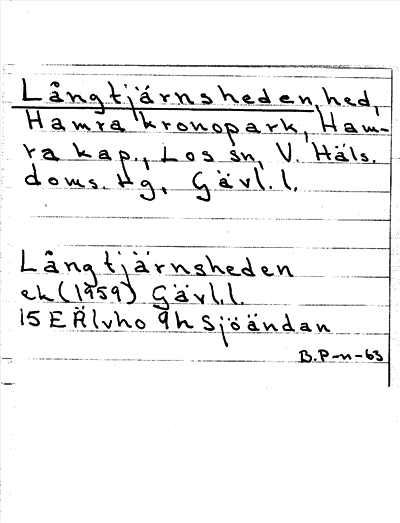 Långtjärnsheden, hed,
Hamra kronopark, Ham-
ra kap., Los sn, V. Häls.
doms. Hg, Gävl. l.
Långtjärnsheden
ek (1959) Gävl. l.
15 E Älvho 9h Sjöändan
B.P-n-63